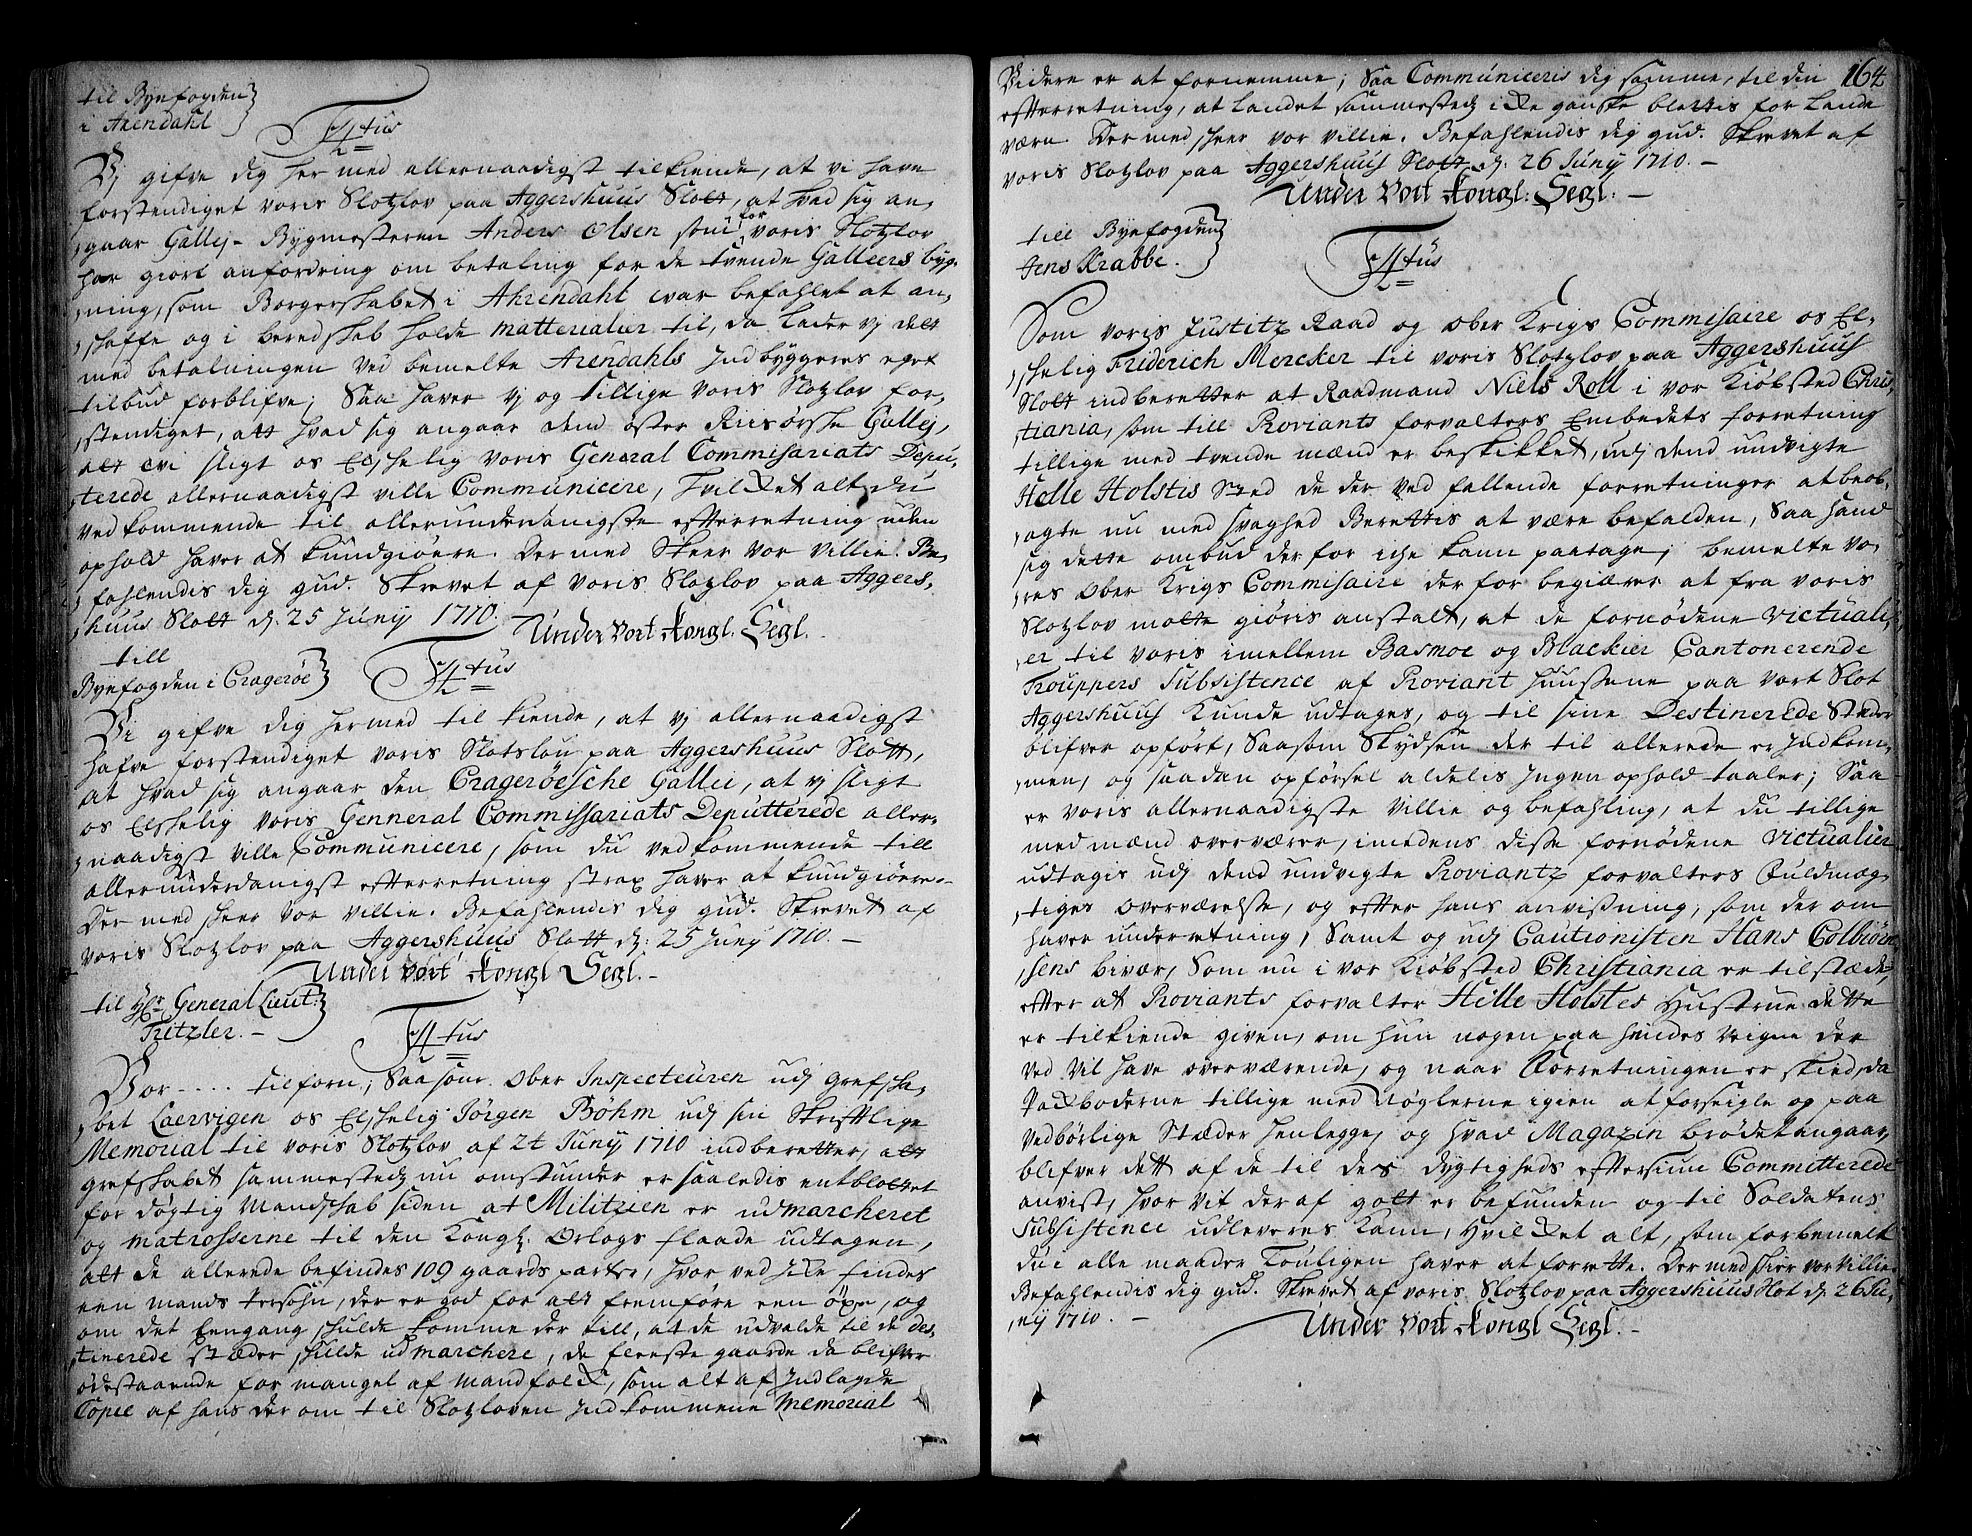 til Byefogden
i Arendahl
Titus
Vj gifve dig her med allernaadigst tilkiende, at vi have
forstendiget voris Slotzlov paa Aggershuus Slott, at hvad sig an,
,gaar Gallej-Bygmesteren Anders Olsen som for voris Slotzlov
har giort anfordring om betaling for de tvende Galleers byg,
,ning, som Borgerskabet i Ahrendahl var befahlet at an,
,skaffe og i beredskab holde Matterialier til, da lader vj det
med betalningen ved bemelte Arendahls Jndbyggeres eget
tilbud forblifve; Saa haver vj og tillige voris Slotzlov for,
,stendiget, att hvad sig angaar dend øster Riisørske Gallej,
alt vi sligt os Elskelig voris General Commisariats Depu,
,terede allernaadigst ville Communicere, hvilket alt du
vedkommende til allerunderdanigste efterretning uden
ophold haver at kundgiøere. Der med skeer vor villie. Be,
,fahlendis dig gud. Skrevet af voris Slotzlov paa Aggers,
,huus Slott d. 25 Junij 1710.
Under Vort Kongl. Segl.
till
Byefogden i Cragerøe
Titus
Vi gifve dig hermed til kiende, at vj allernaadigst
hafve forstendiget voris Slotslou paa Aggershuus Slott,
at hvad sig angaar den Cragerøesche Gallei, at vj sligt
os Elskelig voris Genneral Commissariats Deputterede aller,
,naadigst ville Communicere, som du vedkommende till
allerunderdanigst efterretning strax haver at kundgiøere.-
Der med skeer vor villie. Befahlendis dig gud. Skrevet af
voris Slotzlov paa Aggershuus Slott d: 25 Junij 1710. -
Under Vort Kongl Segl. -
til Hr General Lieut:
Tritzler. -
Titus
Vor .... tilforn, Saasom Ober Inspecteuren udj Grefska,
,bet Laervigen os Elskelig Jörgen Böhm udj sin Skriftlige
Memorial til voris Slotzlov af 24 Junij 1710 indberetter, alt
grefskabet sammestedz nu omstunder er saaledis entblottet
for døgtig Mandskab siden at Militzien er udmarcheret
og Matrosserne til den Kongl. Orlogs flaade udtagen,
att de allerede befindes 109 gaards parter, hvor ved icke findes
een mands Persohn, der er god for att fremføre een öxe, og
om det Eengang skulde komme der till, at de udvalde til de des,
,tinerede stæder skulde udmarchere, de fleeste gaarde da blifver
ødestaaende for mangel af mandfolck, som alt af Jndlagde
Copie af hans der om til Slotzloven Jndkommene Memorial
164
Videre er at fornemme; Saa Communiceris dig samme, til din
efterretning, at landet sammestedz icke ganske blottis for lande
værn. Der med skeer vor villie. Befahlendis dig gud. Skrevet af
voris Slotzlov paa Aggershuus Slott d. 26 Junij 1710. -
Under Vort Kongl: Segl. -
till Byefogden
Jens Krabbe.
Titus
Som voris Justitz Raad og Ober Krigs Commisaire os El,
,skelig Friderich Mercker til voris Slotzlov paa Aggershuus
Slott indberetter at Raadmand Niels Roll i vor Kiøbsted Chris,
,tiania, som till Proviants forvalters Embedets forretning
tillige med tvende mænd er beskikket, udj dend undvigte
Helle Holstis Sted de der ved fallende forretninger at beob,
,agte nu med svaghed Berettis at være befalden, Saa hand
sig dette ombud der for iche kann paatage; bemelte vo,
,res Ober Krigs Commisaire der for begiærer at fra voris
Slotzlov motte giøris anstalt, at de fornødene Victuali,
,er til voris imellem Basmoe og Blackier Cantonerende
Trouppers Subsistence af Proviant huusene paa vort Slot
Aggershuus Kunde udtages, og til sine Destinerede Stæder
blifver opført, Saasom Skydsen der til allerede er Jndkom,
,men, og saadan opførsel aldelis Jngen ophold taaler; Saa
er voris allernaadigste villie og befahling, at du tillige
med mænd overværer, imedens disse fornødene Victualier
udtagis udj dend undvigte Proviantz forvalters Fuldmæg,
,tiges overværelse, og efter hans anvisning, som der om
haver underretning, Samt og udj Cautionisten Hans Colbiørn,
,sens bivær, Som nu i vor Kiøbsted Christiania er tilstæde,
efter at Proviants forvalter Helle Holstes Hustrue dette
er tilkiende given, om hun nogen paa hindes veigne der
ved vil have overværende, og naar Forretningen er skied, da
Packboderne tillige med Nøglerne igien at forseigle og paa
vedbørlige Stæder henlegge, og hvad Magazin brødet angaar,
blifver dett af de til des dygtigheds eftersiun Committerede
anvist, hvor vit der af gott er befunden og til Soldatens
Subsistence udleveres kann, Hvilcket alt, som forbemelt
du i alle maader trouligen haver at forrette. Der med skier vor villie.
Befahlendis dig gud. Skrevet af voris Slotzlov paa Aggershuus Slot d. 26 Ju,
,nij 1710. -
Under Vort Kongl Segl. -